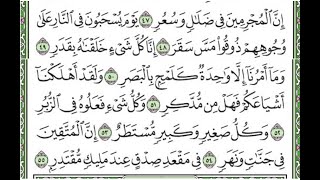 إِنَّ ٱلْمُجْرِمِينَ فِى ضَلَٰلٍ وَسُعُرٍ ٤٧ يَوْمَ يُسْحَبُونَ فِى ٱلنَّارِ عَلَىٰ
وُجُوهِهِمْ ذُوقُوا۟ مَسَّ سَقَرَ ٤٨ إِنَّا كُلَّ شَىْءٍ خَلَقْنَٰهُ بِقَدَرٍ ٤٩
وَمَآ أَمْرُنَآ إِلَّا وَٰحِدَةٌ كَلَمْحٍۭ بِٱلْبَصَرِ ٥٠ وَلَقَدْ أَهْلَكْنَآ
أَشْيَاعَكُمْ فَهَلْ مِن مُّدَّكِرٍ ٥١ وَكُلُّ شَىْءٍ فَعَلُوهُ فِى ٱلزُّبُرِ
٥٢ وَكُلُّ صَغِيرٍ وَكَبِيرٍ مُّسْتَطَرٌ ٥٣ إِنَّ ٱلْمُتَّقِينَ
فِى جَنَّٰتٍ وَنَهَرٍ ٥٤ فِى مَقْعَدِ صِدْقٍ عِندَ مَلِيكٍ مُّقْتَدِرٍۭ ٥٥